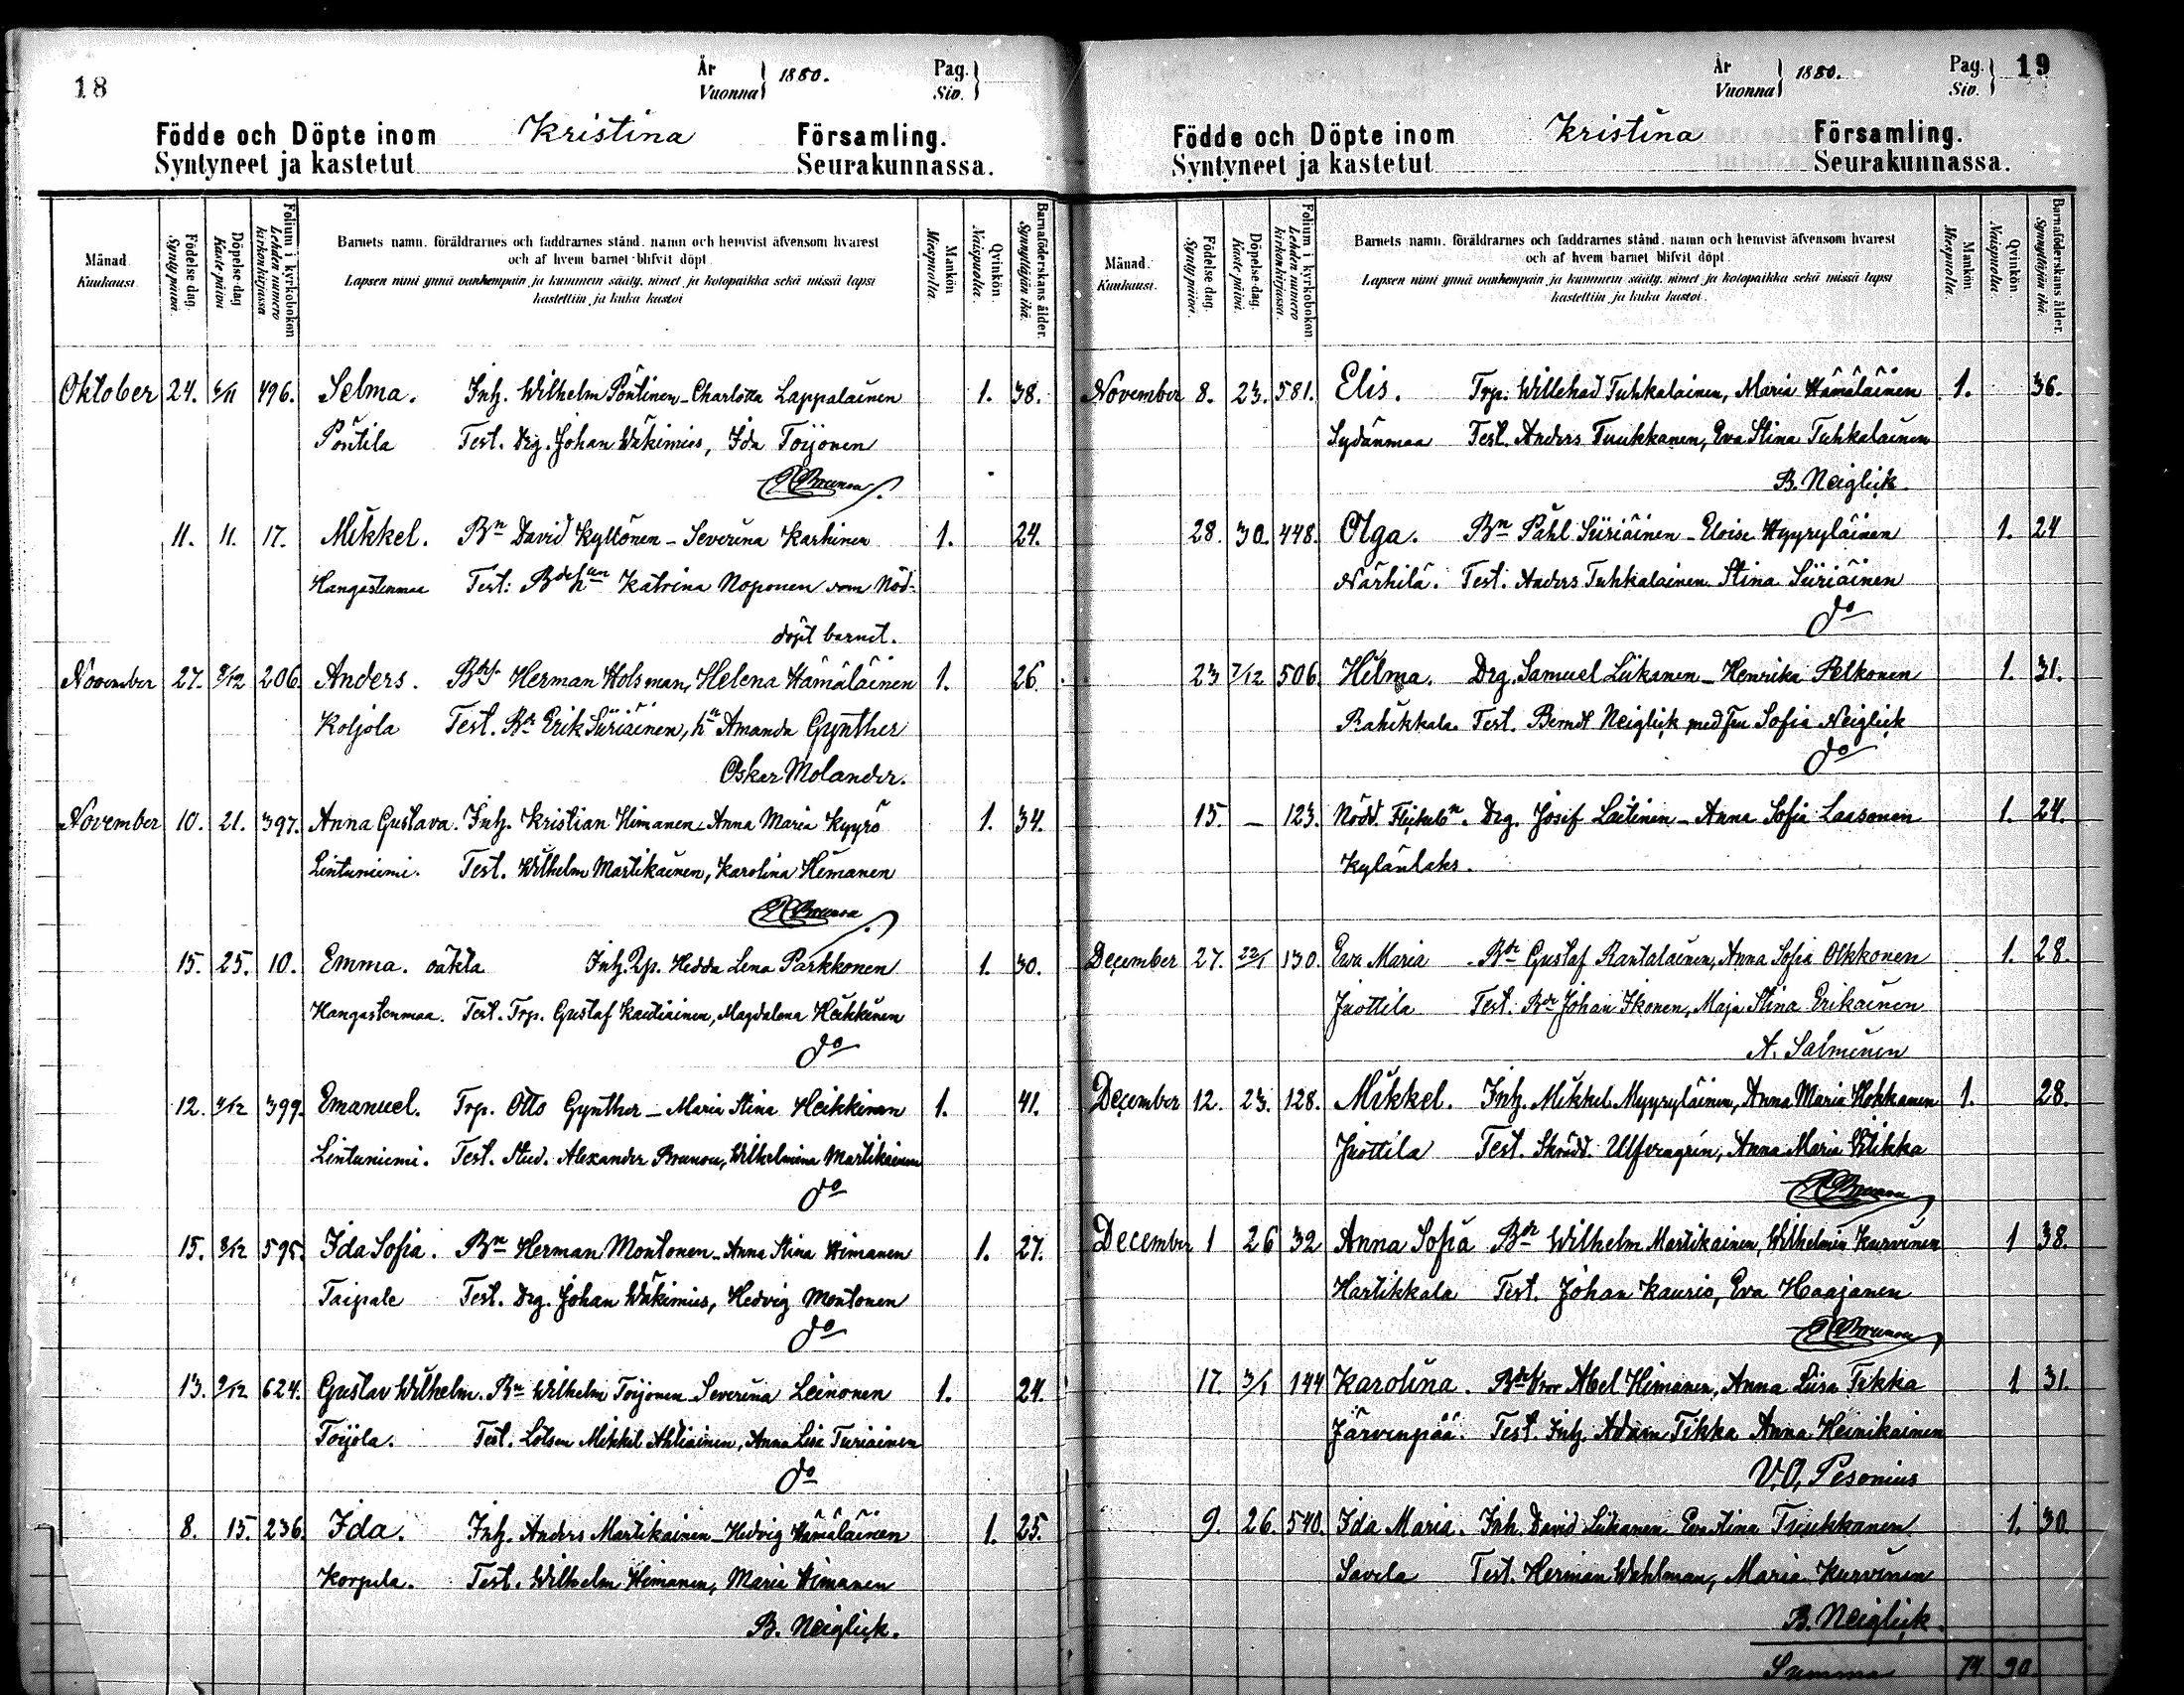 18
År Vuonna } 1880. Pag. Siv. }
Födde och Döpte inom Kristina Församling.
Syntyneet ja kastetut Seurakunnassa.
Månad. Kuukausi. Födelse dag. Synty päivä. Döpelse dag Kaste päivä Folium i kyrkoboken Lehden numero kirkonkirjassa. Barnets namn, föräldrarnes och faddrarnes stånd, namn och hemvist äfvensom hvarest Mankön Miespuolia. Qvinkön. Naispuolia. Barnaföderskans ålder. Synnyttäjän ikä.
och af hvem barnet blifvit döpt.
Lapsen nimi ynnä vanhempain ja kummein sääty, nimet ja kotopaikka sekä missä lapsi
kastettiin ja kuka kastoi
Oktober 24. 3/11 496. Selma. Inh. Wilhelm Pöntinen - Charlotta Lappalainen 1. 38.
Pöntilä Test. Drg. Johan Wäkimies, Ida Toijonen
Brunou
11. 11. 17. Mikkel. Bn David Kyllönen - Severina Karhinen 1. 24.
Hangastenmaa Test: Bdes hun Katrina Noponen som Nöd-
döpt barnet.
November 27. 8/12 206. Anders. Herman Holsman, Helena Hämäläinen 1. 26.
Koljola Test. Bd Erik Siiriäinen, hn Amanda Gynther
Oskar Molander.
November 10. 21. 397. Anna Gustava. Inh. Kristian Himanen - Anna Maria Kyyrö 1. 34.
Lintuniemi. Test. Wilhelm Martikainen, Karolina Himanen
Brunou
15. 25. 10. Emma. oäkta Inh. Hedda Lena Parkkonen 1. 30.
Hangastenmaa. Test. Trp. Gustaf Kautiainen, Magdalena Heikkinen
do
12. 4/12 399. Emanuel. Trp. Otto Gynther - Maria Stina Heikkinen 1. 41.
Lintuniemi. Test. Stud. Alexander Brunou, Wilhelmina Martikainen
do
15. 8/12 595. Ida Sofia. Bn Herman Montonen - Anna Stina Himanen 1. 27.
Taipale Test. Drg. Johan Wäkimies, Hedvig Montonen
do
13. 9/12 624. Gustav Wilhelm. Bn Wilhelm Toijonen - Severina Leinonen 1. 24.
Toijola. Test. Lotsen Mikkil Ahtiainen, Anna Lisa Turiainen
do
8. 15. 236. Ida. Inh. Anders Martikainen - Hedvig Hämäläinen 1. 25.
Korpula. Test. Wilhelm Himanen, Maria Himanen
B. Neiglick.
År Vuonna } 1880. Pag. Siv. } 19
Födde och Döpte inom Kristina Församling.
Syntyneet ja kastetut Seurakunnassa.
Månad. Kuukausi. Födelse dag. Synty päivä. Döpelse dag Kaste päivä. Folium i kyrkoboken Lehden numero kirkonkirjassa. Barnets namn, föräldrarnes och faddrarnes stånd, namn och hemvist äfvensom hvarest Mankön Miespuolia. Qvinkön. Naispuolia. Barnaföderskans ålder. Synnyttäjän ikä.
och af hvem barnet blifvit döpt.
Lapsen nimi ynnä vanhempain ja kummein sääty, nimet ja kotopaikka sekä missä lapsi
kastettiin ja kuka kastoi.
November 8. 23. 581. Elis. Trp. Willehad Tuhkalainen, Maria Hämäläinen 1. 36.
Sydänmaa Test. Anders Tuukkanen, Eva Stina Tuhkalainen
B. Neiglick.
28. 30. 448. Olga. Bn Pahl Siiriäinen - Eloise Hyyryläinen 1. 24
Närhilä. Test. Anders Tuhkalainen Stina Siiriäinen
do
23 7/12 506. Hilma. Drg. Samuel Liikanen - Henrika Pelkonen 1. 31.
Rahikkala. Test. Berndt Neiglick med fru Sofia Neiglick
do
15. - 123. Nödd. Drg. Josif Laitinen - Anna Sofia Laasonen 1. 24.
Kylänlaks.
December 27. 22/1 130. Eva Maria Gustaf Rantalainen, Anna Sofia Olkkonen 1. 28.
Juottila Test. Johan Ikonen, Maja Stina Erikainen
A. Salminen
December 12. 23. 128. Mikkel. Inh. Mikkel Myyryläinen, Anna Maria Hokkanen 1. 28.
Juottila Test. Skrädd. Ulfvengren, Anna Maria Wikka
Brunou
December 1 26 32 Anna Sofia Wilhelm Martikainen, Wilhelmin Kurvinen 1 38.
Hartikkala Test. Johan Kauria, Eva Haajanen
Brunou
17 3/1 144 Karolina. Abel Himanen, Anna Liisa Tikka 1 31.
Järvenpää. Test. Inh. Adam Tikka Anna Heinikainen
V. O. Pesonius
9. 26. 540. Ida Maria. Inh. David Liikanen Eva Stina Tuukkanen 1. 30.
Savela Test. Herman Wahlman, Maria Kurvinen
B. Neiglick.
Summa 74 90.